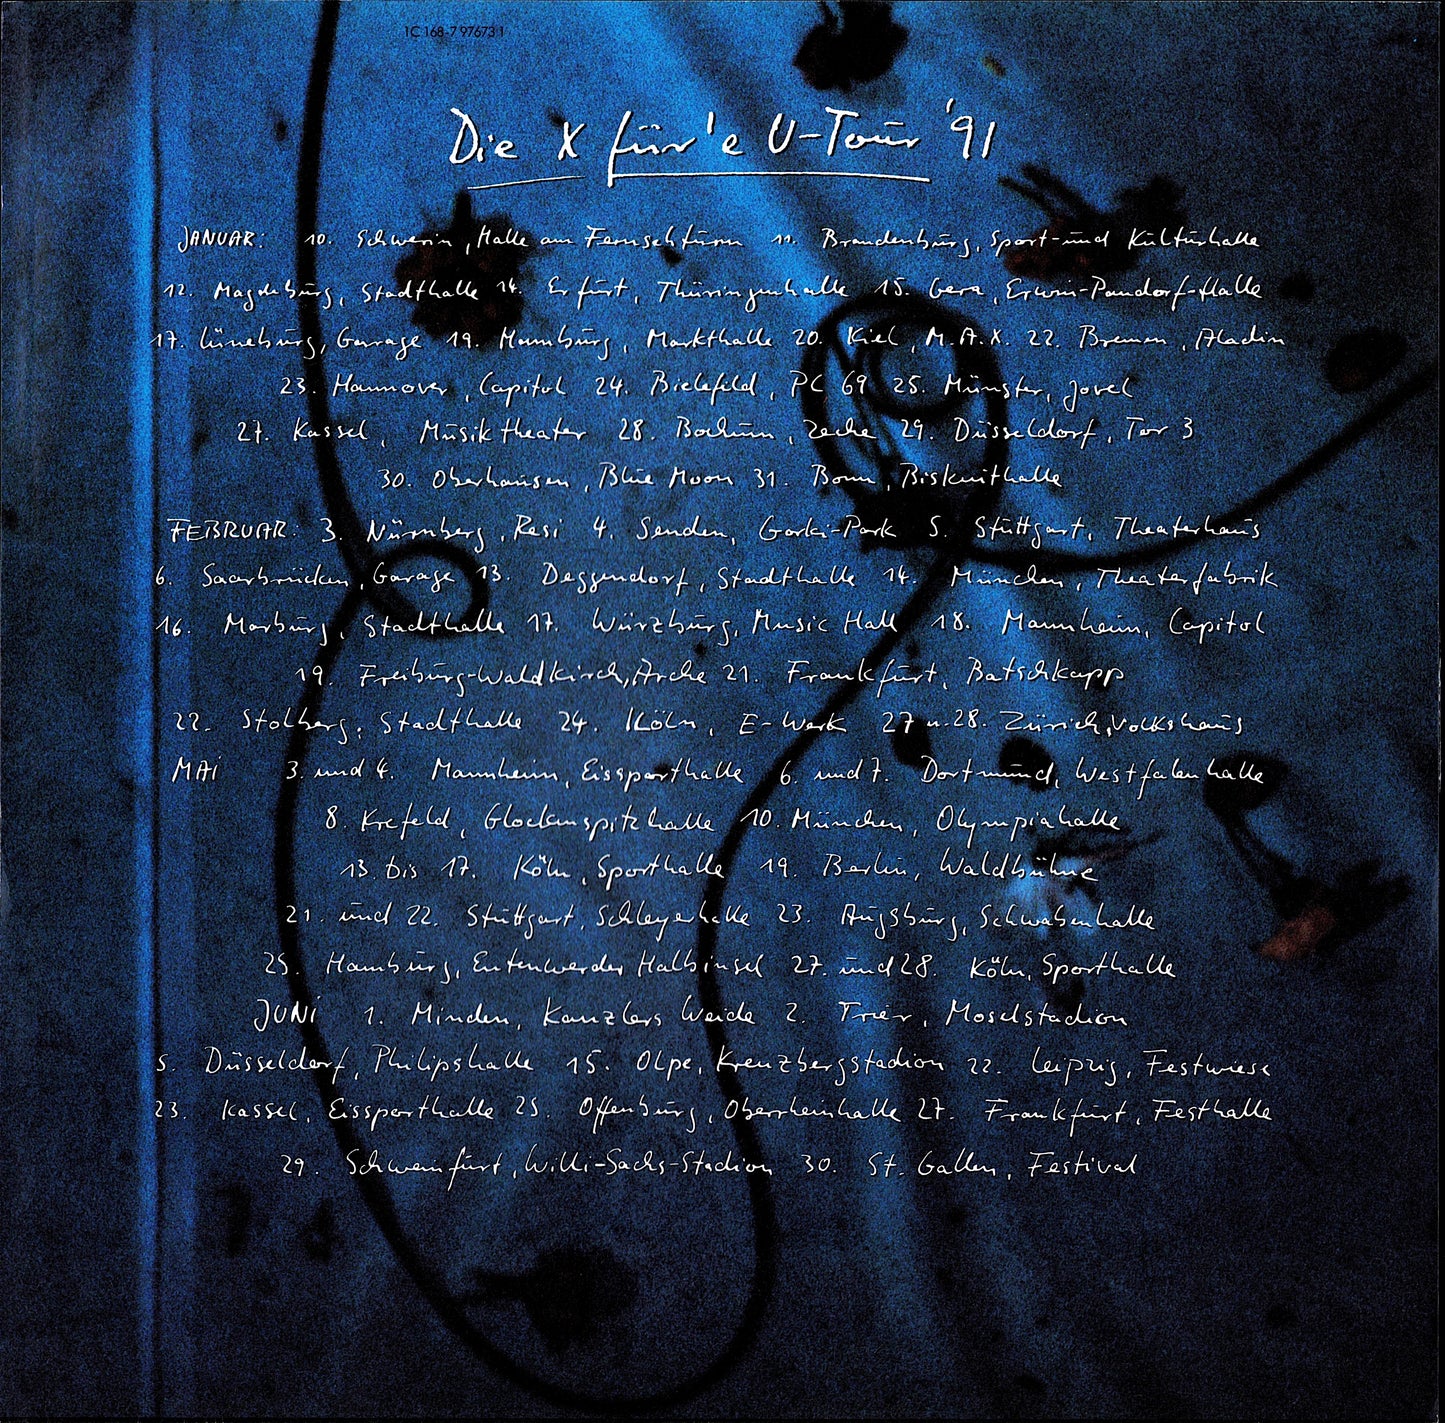 1C 168-7 97673 1
Die X für'e U-Tour '91
JANUAR: 10. Schwerin, Halle am Fernsehturm 11. Brandenburg, Sport-und Kulturhalle
12. Magdeburg, Stadthalle 14. Erfurt, Thüringenhalle 15. Gera, Erwin-Pandorf-Halle
17. Lüneburg, Garage 19. Hamburg, Markthalle 20. Kiel, M.A.X. 22. Bremen, Aladin
23. Hannover, Capitol 24. Bielefeld, PC 69 25. Münster, Jovel
27. Kassel, Musiktheater 28. Bochum, Zeche 29. Düsseldorf, Tor 3
30. Oberhausen, Blue Moon 31. Bonn, Biskuithalle
FEBRUAR: 3. Nürnberg, Resi 4. Senden, Gorki-Park 5. Stuttgart, Theaterhaus
6. Saarbrücken, Garage 13. Deggendorf, Stadthalle 14. München, Theaterfabrik
16. Marburg, Stadthalle 17. Würzburg, Music Hall 18. Mannheim, Capitol
19. Freiburg-Waldkirch, Arche 21. Frankfurt, Batschkapp
22. Stolberg, Stadthalle 24. Köln, E-Werk 27 u. 28. Zürich, Volkshaus
MAI 3. und 4. Mannheim, Eissporthalle 6. und 7. Dortmund, Westfalenhalle
8. Krefeld, Glockenspitzhalle 10. München, Olympiahalle
13. bis 17. Köln, Sporthalle 19. Berlin, Waldbühne
21. und 22. Stuttgart, Schleyerhalle 23. Augsburg, Schwabenhalle
25. Hamburg, Entenwerder Halbinsel 27. und 28. Köln, Sporthalle
JUNI 1. Minden, Kanzlers Weide 2. Trier, Moselstadion
5 Düsseldorf, Philipshalle 15. Olpe, Kreuzbergstadion 22. Leipzig, Festwiese
23. Kassel, Eissporthalle 25. Offenburg, Oberrheinhalle 27. Frankfurt, Festhalle
29. Schweinfurt, Willi-Sachs-Stadion 30. St. Gallen, Festival